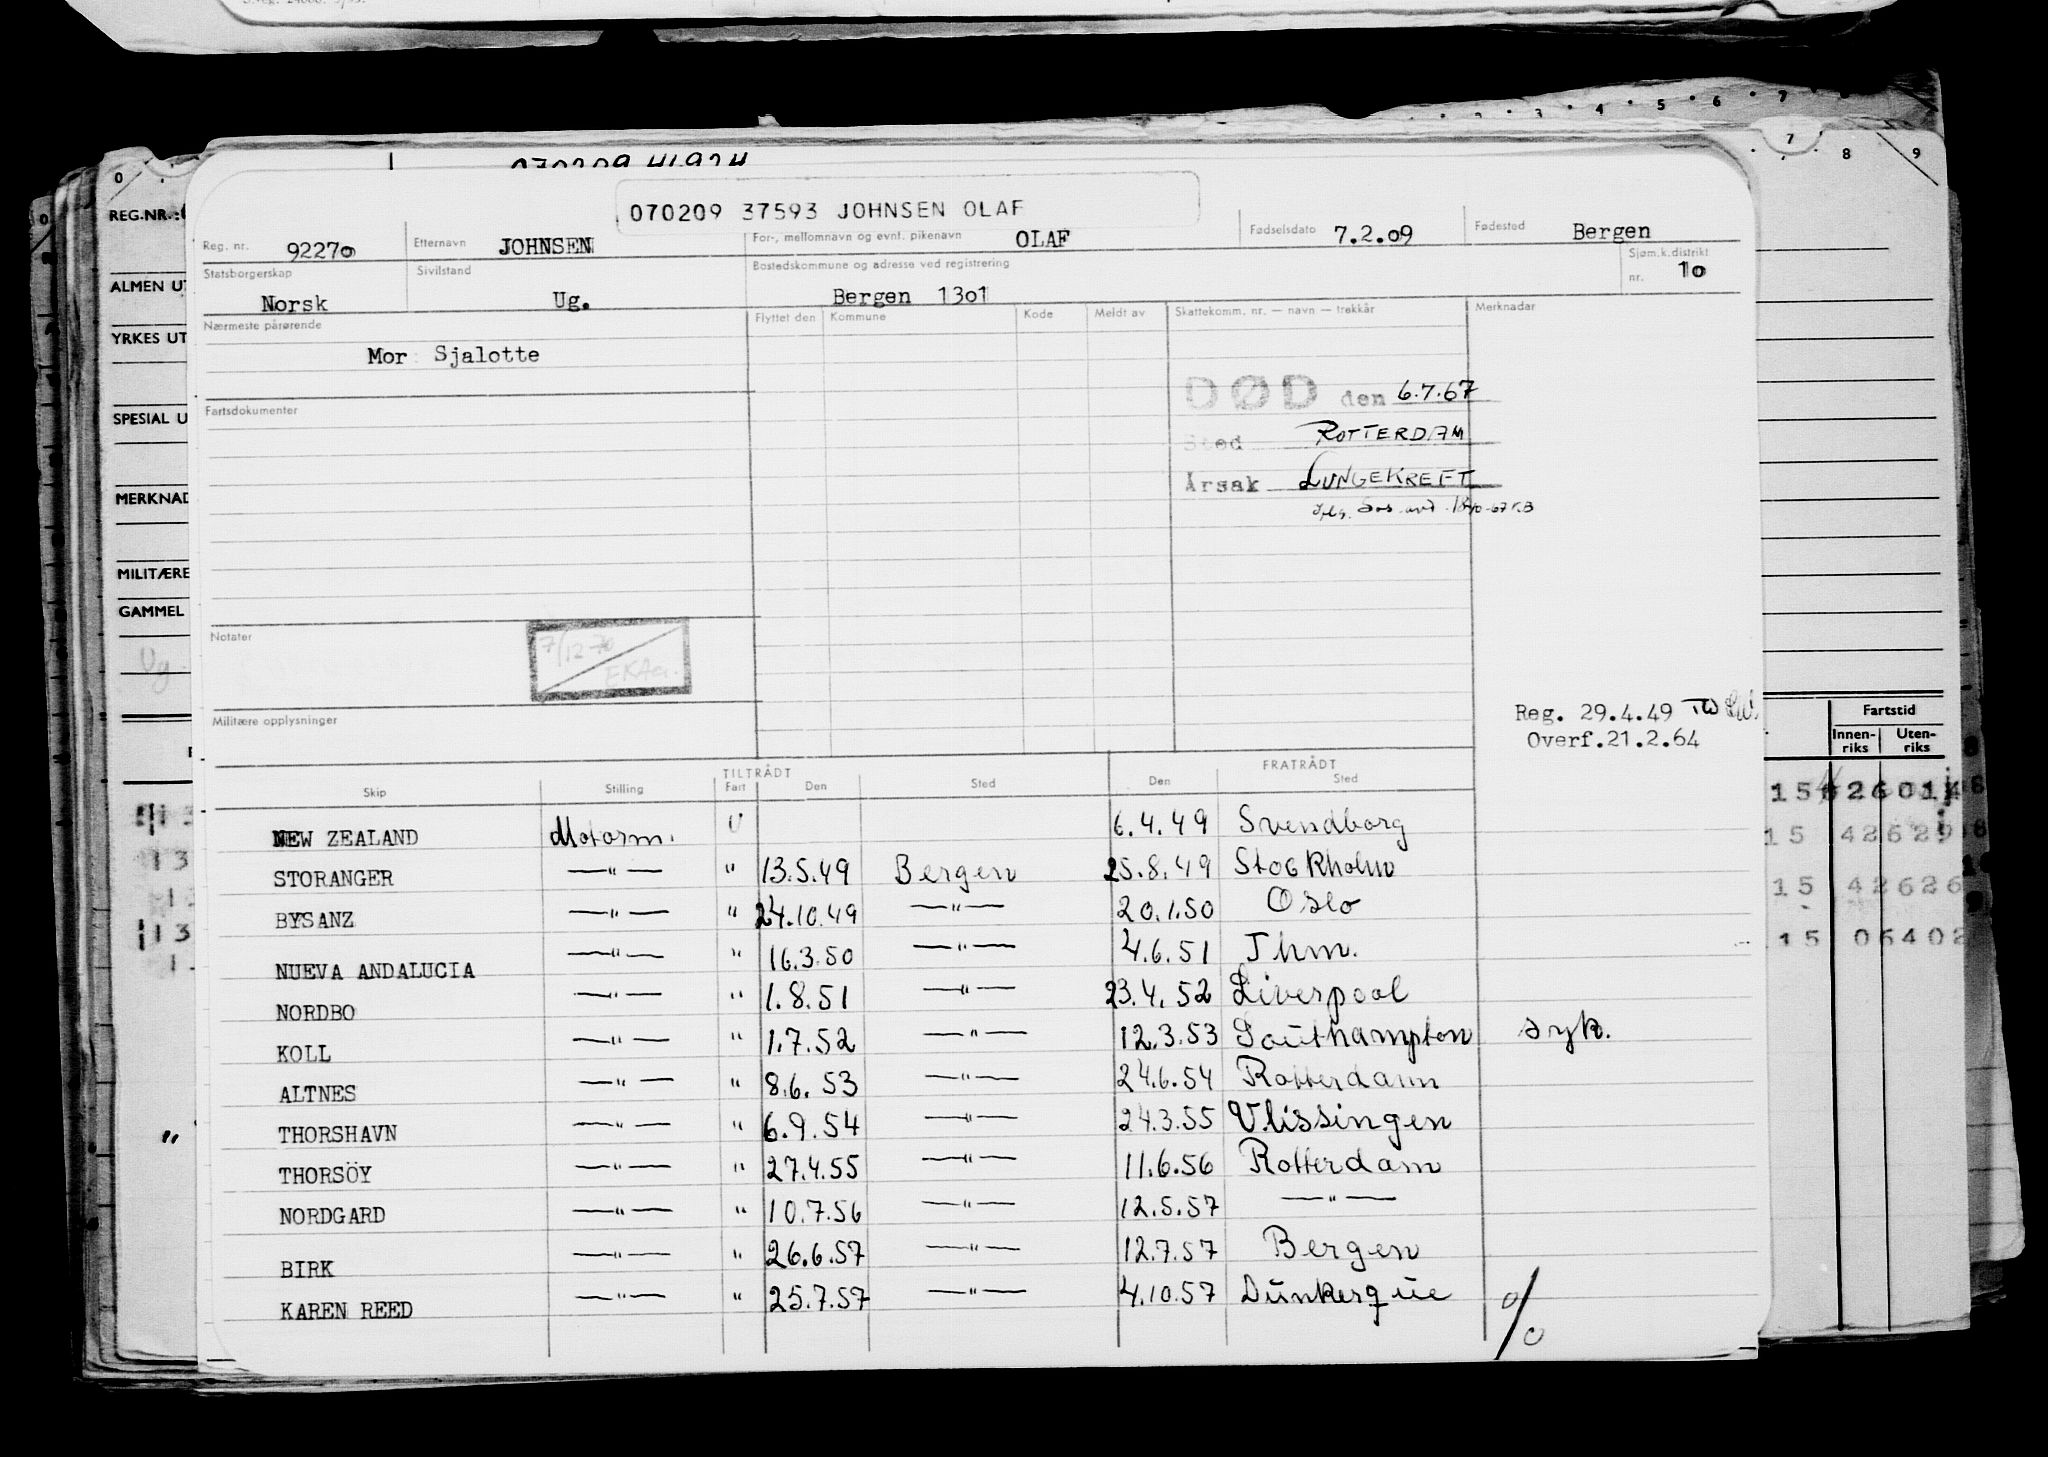 070209 41924
0 2 3 4 5 6 7 8 9
REG.NR.:
ALMEN UT
YRKES UT
SPESIAL U
MERKNAD
MILITÆRE
GAMMEL
Ug.
070209 37593 JOHNSEN OLAF
Reg. nr. 92270 Etternavn JOHNSEN For-, mellomnavn og evnt. pikenavn OLAF Fødselsdato 7.2.09 Fødested Bergen
Statsborgerskap Norsk Sivilstand Ug. Bostedskommune og adresse ved registrering Bergen 1301 Sjøm.k.distrikt nr. 10
Nærmeste pårørende Flyttet den Kommune Kode Meldt av Skattekomm. nr. — navn — trekkår Merknader
Mor Sjalotte
DØD den 6.7.67
Fartsdokumenter
Sted ROTTERDAM
Årsak LUNGEKREFT
Notater
7/12-70
Militære opplysninger
Reg. 29.4.49
Overf.21.2.64
Fartstid
Innen-riks Uten-riks
TILTRÅDT FRATRÅDT
Skip Stilling Fart Den Sted Den Sted
NEW ZEALAND Motorm. U 6.4.49 Svendborg
STORANGER —"— " 13.5.49 Bergen 25.8.49 Stockholm
BYSANZ —"— " 24.10.49 —"— 20.1.50 Oslo
NUEVA ANDALUCIA —"— " 16.3.50 —"— 4.6.51 Thm.
NORDBO —"— " 1.8.51 —"— 23.4.52 Liverpool
KOLL —"— " 1.7.52 —"— 12.3.53 Southampton syk.
ALTNES —"— " 8.6.53 —"— 24.6.54 Rotterdam
THORSHAVN —"— " 6.9.54 —"— 24.3.55 Vlissingen
THORSÖY —"— " 27.4.55 —"— 11.6.56 Rotterdam
NORDGARD —"— " 10.7.56 —"— 12.5.57 —"—
BIRK —"— " 26.6.57 —"— 12.7.57 Bergen
KAREN REED —"— " 25.7.57 —"— 4.10.57 Dunkerque
15 42626
15 06402